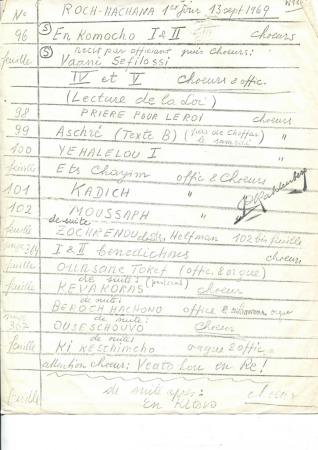 No ROCH-HACHANA 1er jour 13 sept 1969
96 (S) En Komocho I & II choeurs
(S) récit par officiant puis choeurs:
feuille Vaani Sefilossi
IV et V choeurs & offic.
(Lecture de la Loi)
98 PRIERE POUR LE ROI choeurs
99 Aschré (Texte B) (pas de Choffar le samedi) "
100 YEHALELOU I "
feuille Ets Chayim offic & Choeurs
101 KADICH "
102 MOUSSAPH "
de suite
feuille ZOCHRENOU Helfman 102 bis feuille
page 364 I & II bénédictions choeurs
feuille OUNSANE TOKEF (offic & orgue)
de suite
feuille KEVAKORAS choeur
de suite:
feuille BEROCH HACHONO office & orgue
de suite:
page 367 OUSESCHOUVO Choeur
de suite
feuille Ki KESCHIMCHO orgue & offic
attention choeurs: Veato hou en Ré!
feuille de suite après:
En Kitsvo